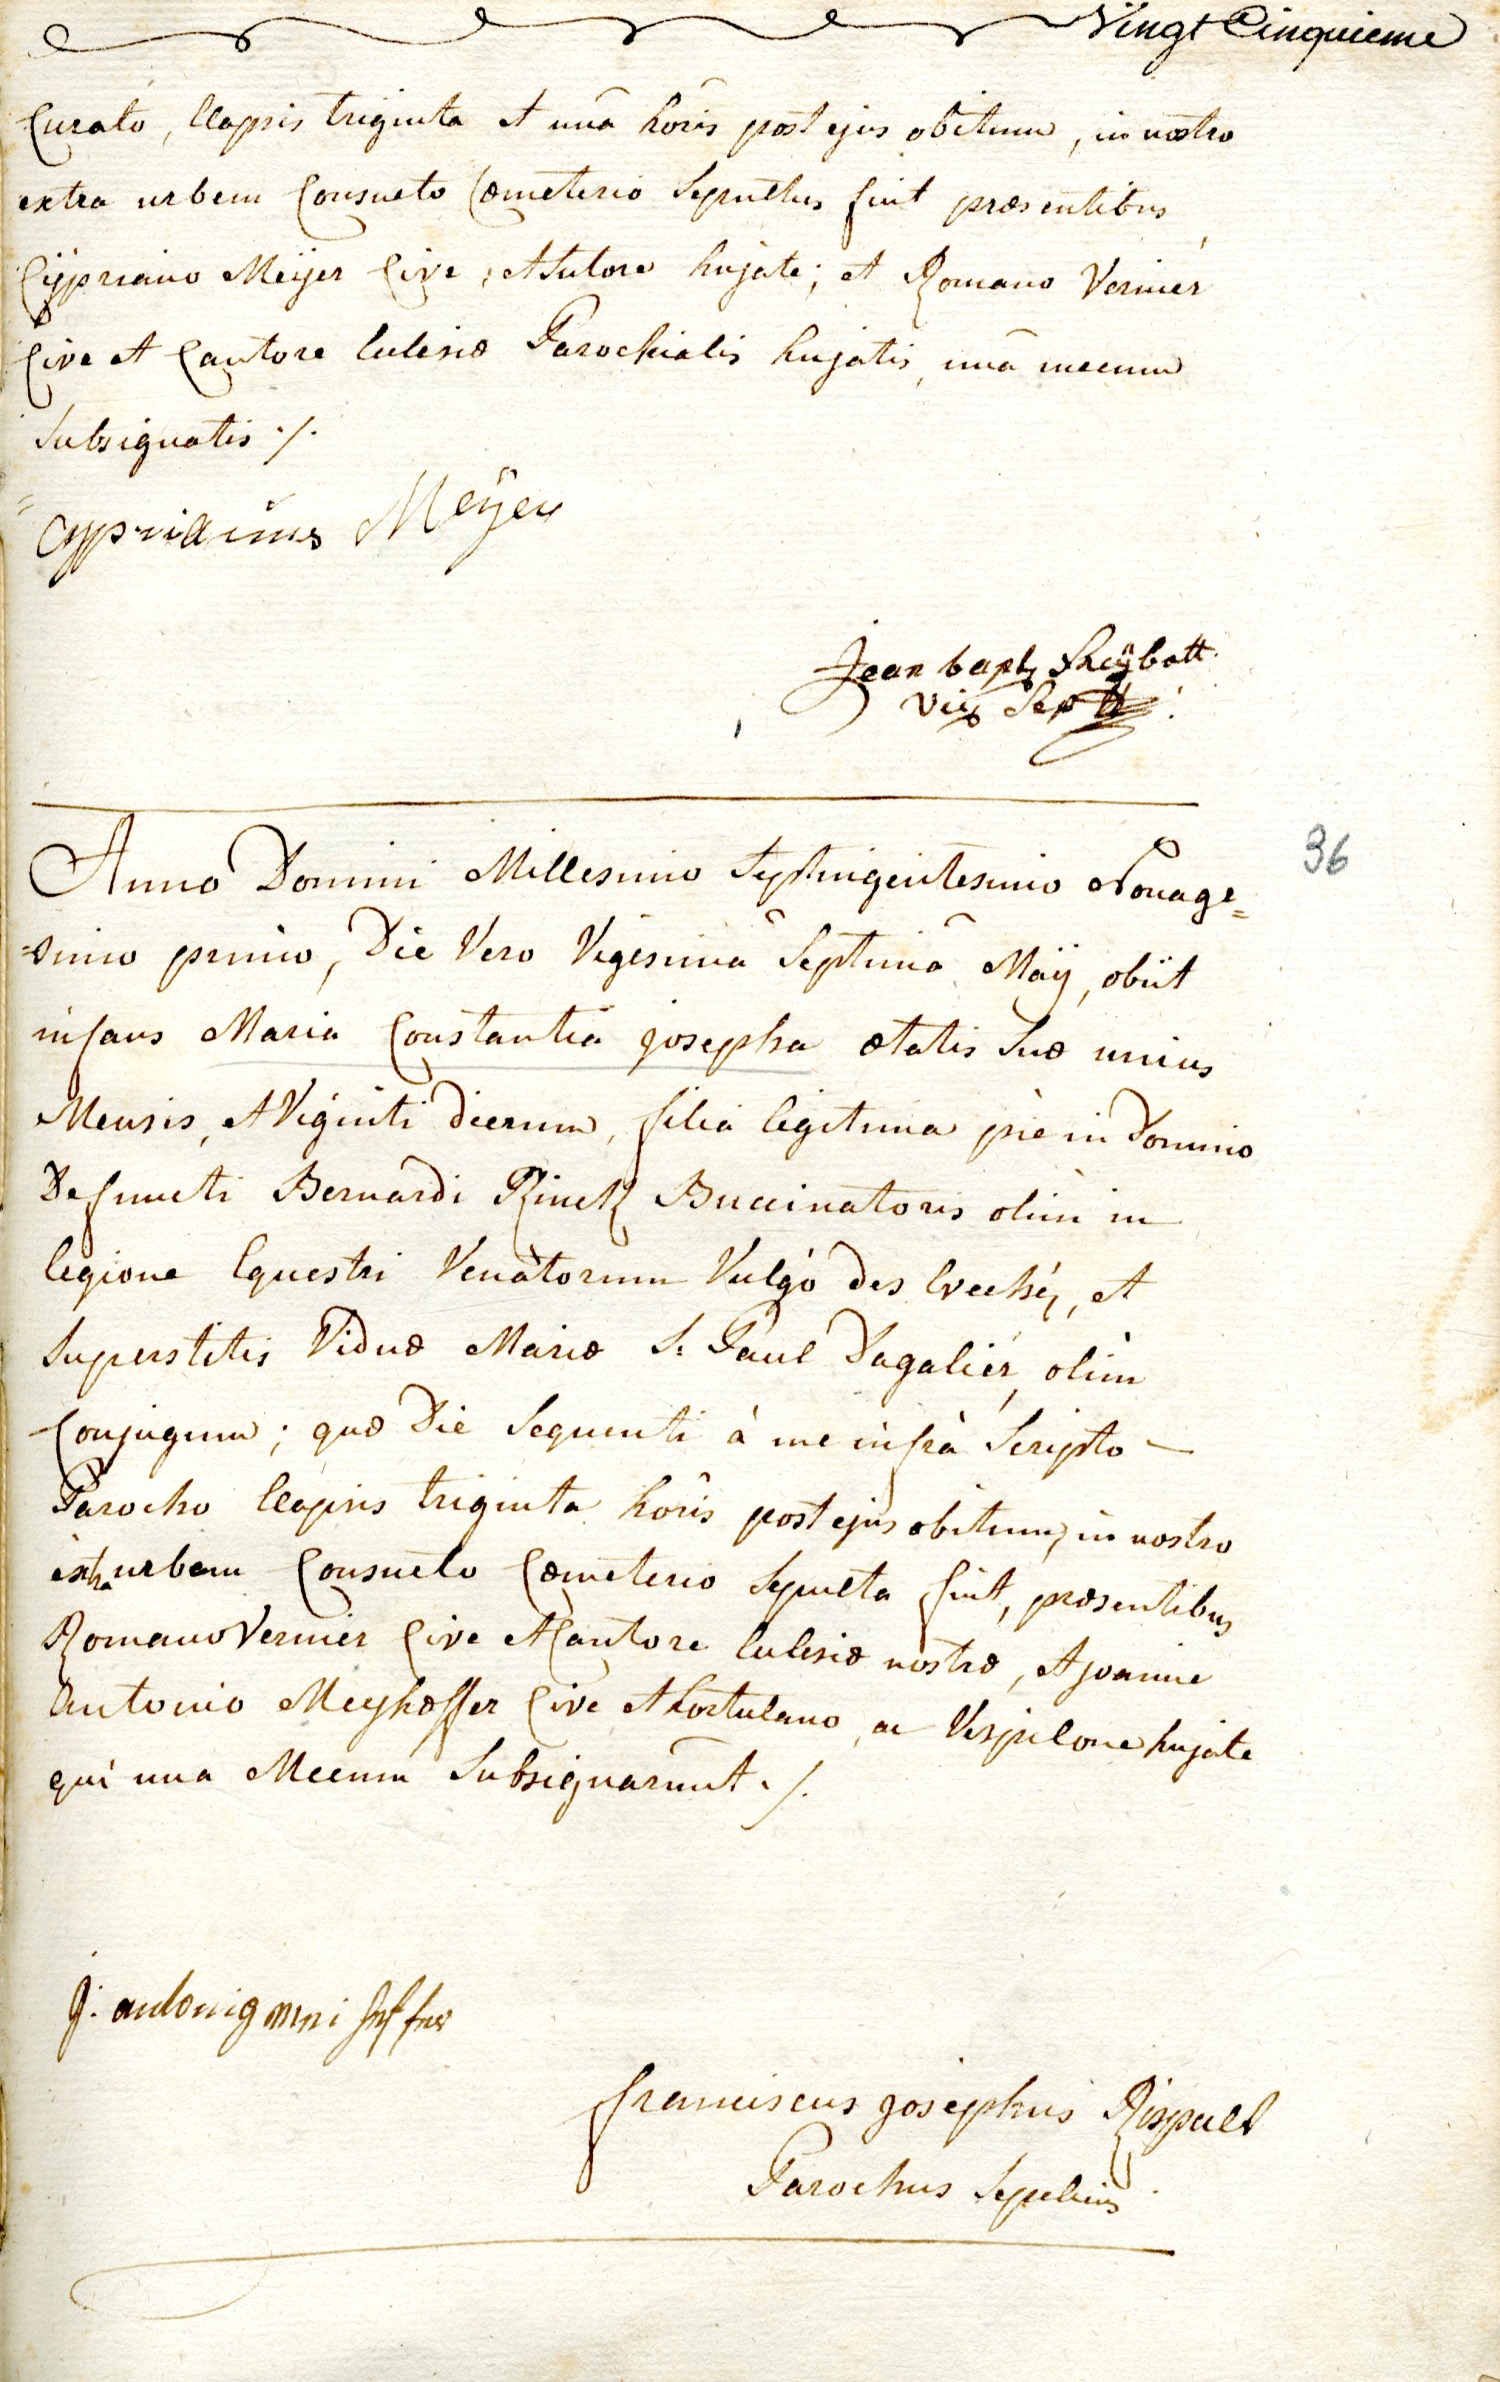 Vingt Cinquieme
Curato, Elapsis triginta et unâ horis post ejus obitum, in nostro
extra urbem Consueto Cœmeterio Sepultus fuit præsentibus
Cÿpriano Meÿer Cive, et Sutore hujate; et Romano Vernier
Cive et Cantore Ecclesiæ Parochialis hujatis, unâ mecum
Subsignatis ./.
Cyprianus Meÿer
Jean bapt
Vic Sept
36
Anno Domini Millesimo Septingentesimo Nonage=
=simo primo, Die Vero Vigesimâ Septimâ Maÿ, obiit
infans Maria Constantia josepha ætatis Suæ unius
Mensis, et Viginti dierum, filia legitima piè in Domino
Defuncti Bernardi Rinck Buccinatoris olim in
legione Equestri Venatorum Vulgò des Evechéz, et
Superstitis Viduæ Mariæ S. Paul Dagalier, olim
Conjugum; quæ Die Sequenti à me infrà Scripto
Parocho Elapsis triginta horis post ejus obitum, in nostro
extra urbem Consueto Cœmeterio Sepulta fuit, præsentibus
Romano Vernier Cive et Cantore Ecclesiæ nostræ, et joanne
Antonio Meyhoffer Cive et hortulano, ac Vespilone hujate
qui una Mecum Subsignarunt ./.
J. antoni
franciscus josephus Rispall
Parochus Sepeliens